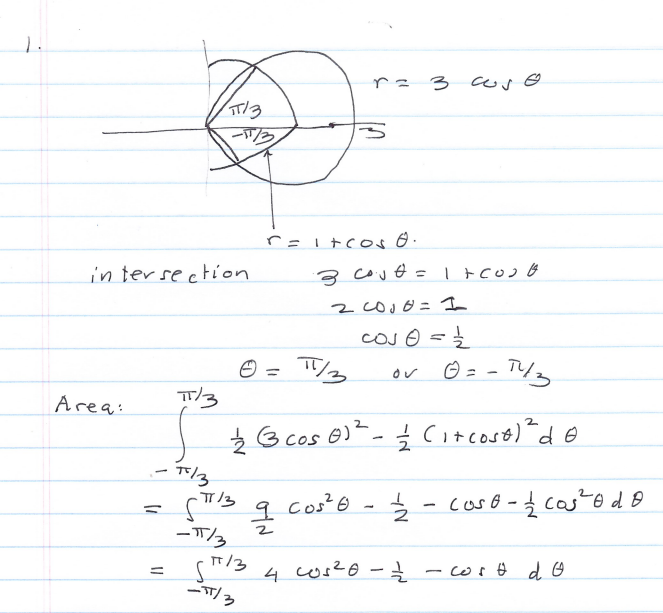 1.
r = 3 cos θ
π/3
-π/3
3
r = 1 + cos θ.
intersection 3 cos θ = 1 + cos θ
2 cos θ = 1
cos θ = 1/2
θ = π/3 or θ = - π/3
Area: ∫_{-π/3}^{π/3} 1/2 (3 cos θ)² - 1/2 (1 + cos θ)² d θ
= ∫_{-π/3}^{π/3} 9/2 cos² θ - 1/2 - cos θ - 1/2 cos² θ d θ
= ∫_{-π/3}^{π/3} 4 cos² θ - 1/2 - cos θ d θ